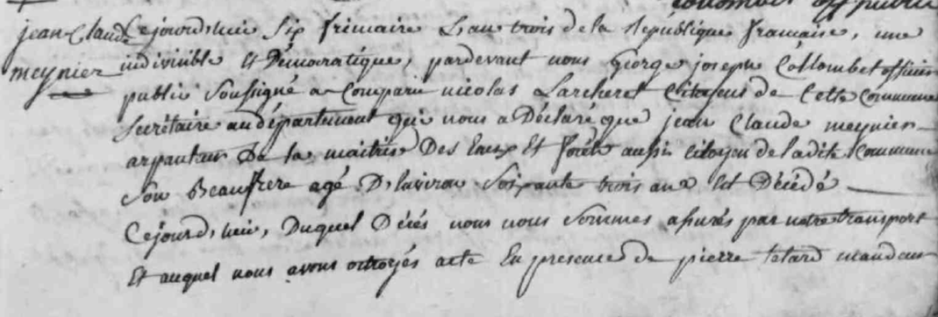 jean Claude
meynier
Cejourd'huï Six frimaire L'an trois de la République francaise, une
indivisible et Démocratique, pardevant nous george joseph Collombet officier
public Soussigné a Comparu nicolas Larcheret Citoyen de Cette Commune
Secrétaire au département qui nous a Déclaré que jean Claude meynier
arpanteur De la maitrise Des Eaux Et forêts aussi Citoyen de ladite Commune
Son Beaufrere agé D'Environ Soixante trois ans Est Décédé
Cejourd'huï, Duquel Décés nous nous Sommes assurés par notre transport
Et auquel nous avons octroyés acte En presence de pierre tetard